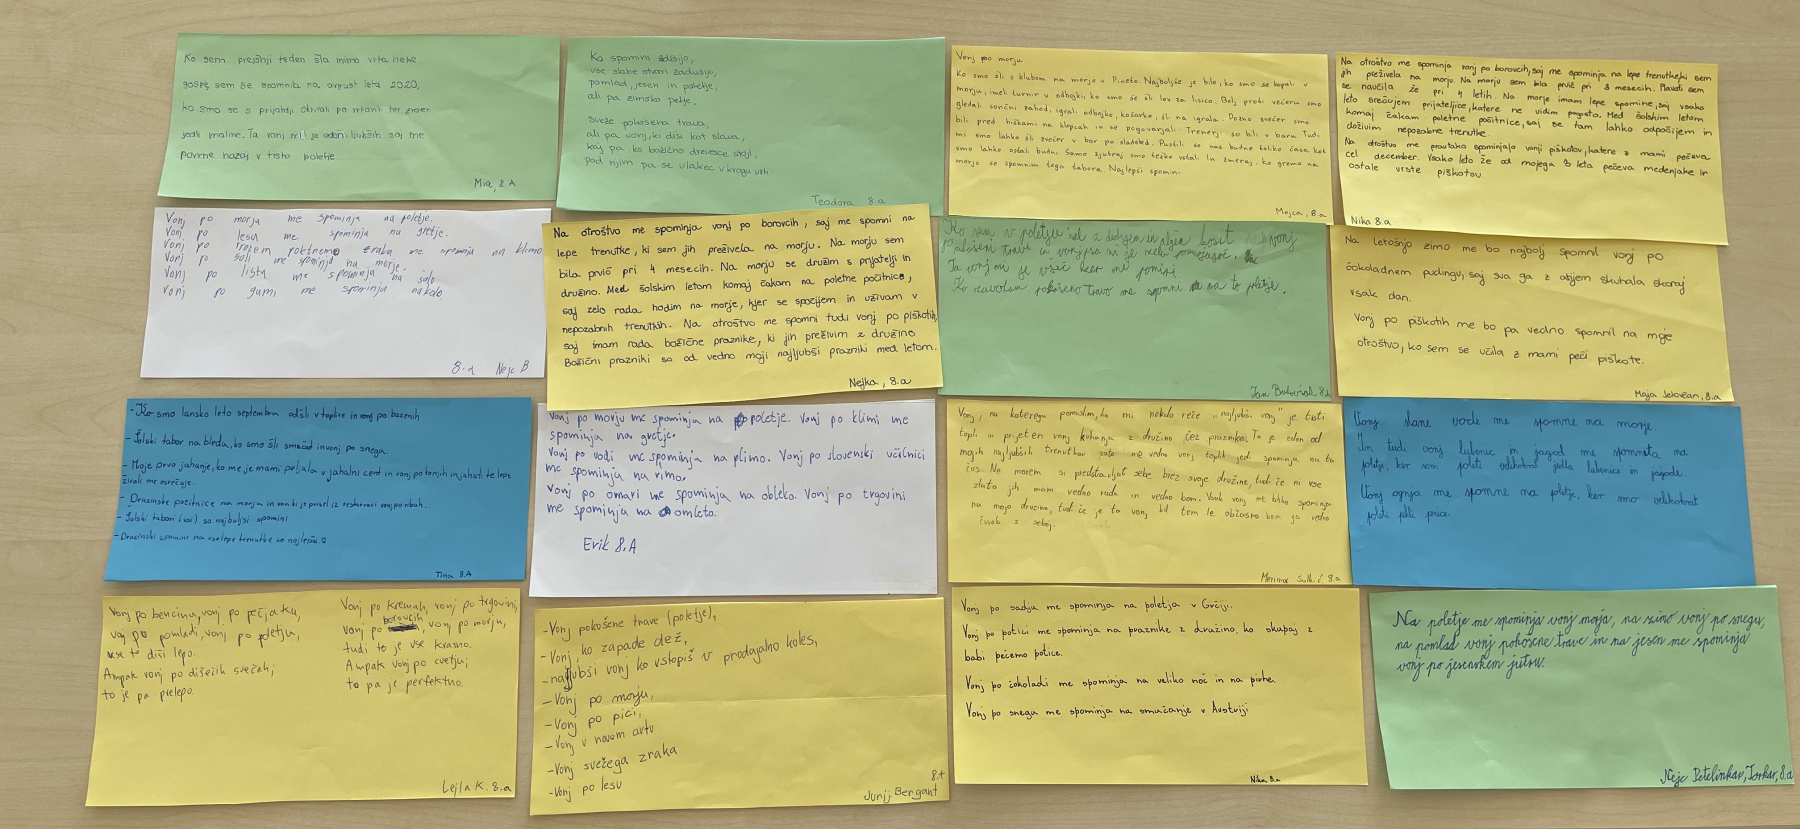 Ko sem prejšnji teden šla mimo vrta neke
gospe, sem se spomnila na avgust leta 2020,
ko smo se s prijatelji skrivali po vrtovih ter zraven
jedli maline. Ta vonj mi je eden ljubših saj me
povrne nazaj v tisto poletje.
Mia, 8.A
Ko spomini zadišijo,
vse slabe stvari zadušijo,
pomlad, jesen in poletje,
ali pa zimsko petje.
Sveže pokošena trava,
ali pa vonj, ki diši kot slava,
kaj pa ko božično drevesce stoji,
pod njim pa se vlakec v krogu vrti.
Teodora 8.a
Vonj po morju
Ko smo šli s klubom na morje v Pineto. Najboljše je bilo, ko smo se kopali v
morju, imeli turnir v odbojki, ko smo se šli lov za lisico. Bolj proti večeru smo
gledali sončni zahod, igrali odbojko, košarko, šli na igrala. Pozno zvečer smo
bili pred hiškami na klopcah in se pogovarjali. Trenerji so bili v baru. Tudi
mi smo lahko šli zvečer v bar po sladoled. Pustili so nas budne toliko časa kot
smo lahko ostali budni. Samo zjutraj smo težko vstali. In zmeraj, ko gremo na
morje se spomnim tega tabora. Najlepši spomini
Mojca, 8.a
Na otroštvo me spominja vonj po borovcih, saj me spominja na lepe trenutke, ki sem
jih preživela na morju. Na morju sem bila prvič pri 8 mesecih. Plavati sem
se naučila že pri 4 letih. Na morje imam lepe spomine, saj vsako
leto srečujem prijateljice, katere ne vidim pogosto. Med šolskim letom
komaj čakam poletne počitnice, saj se tam lahko odpočijem in
doživim nepozabne trenutke.
Na otroštvo me prav tako spominjajo vonji piškotov, katere z mami pečeva
cel december. Vsako leto že od mojega 3 leta pečeva medenjake in
ostale vrste piškotov.
Nika 8.a
Vonj po morju me spominja na poletje.
Vonj po lesu me spominja na gretje.
Vonj po zraku me spominja na klimo
Vonj po soli me spominja na morje.
Vonj po listu me spominja na šolo
Vonj po gumi me spominja na kolo
8.a Nejc B
Na otroštvo me spominja vonj po borovcih, saj me spomni na
lepe trenutke, ki sem jih preživela na morju. Na morju sem
bila prvič pri 4 mesecih. Na morju se družim s prijatelji in
družino. Med šolskim letom komaj čakam na poletne počitnice,
saj zelo rada hodim na morje, kjer se spočijem in uživam v
nepozabnih trenutkih. Na otroštvo me spomni tudi vonj po piškotih,
saj imam rada božične praznike, ki jih preživim z družino.
Božični prazniki so od vedno moji najljubši prazniki med letom.
Nejka, 8.a
Ko sem v poletju šel z dedijem in kosit vonj
po pokošeni travi in
Ta vonj mi je všeč ker me pomiri.
Ko zavoham pokošeno travo me spomni na to poletje.
Jan 8.a
Na letošnjo zimo me bo najbolj spomnil vonj po
čokoladnem pudingu, saj sva ga z atijem skuhala skoraj
vsak dan.
Vonj po piškotih me bo pa vedno spomnil na moje
otroštvo, ko sem se učila z mami peči piškote.
Maja 8.a
- Ko smo lansko leto septembra odšli v toplice in vonj po bazenih
- Šolski tabor na bledu, ko smo šli smučat in vonj po snegu.
- Moje prvo jahanje, ko me je mami peljala v jahalni center in vonj po konjih in jahati te lepe
živali me osrečuje.
- Družinske počitnice na morju in vonj ki je prišel iz restavracij vonj po ribah.
- Šolski tabori (vsi) so najboljši spomini
- Družinski spomini na vse lepe trenutke so najlepši.
Tina 8.A
Vonj po morju me spominja na poletje. Vonj po klimi me
spominja na gretje.
Vonj po vodi me spominja na plimo. Vonj po slovenski učilnici
me spominja na rimo.
Vonj po omari me spominja na obleko. Vonj po trgovini
me spominja na omleto.
Erik 8.A
Vonj, na katerega pomislim, ko mi nekdo reče "najljubši vonj" je tisti
topli in prijeten vonj kuhanja z družino čez praznike. To je eden od
mojih najljubših trenutkov zato me vedno vonj toplih jedi spominja na ta
čas. Ne morem si predstavljat sebe brez svoje družine, tudi če ni vse
zlato jih mam vedno rada in vedno bom. Vsak vonj me lahko spominja
na mojo družino, tud če je ta vonj bil tem le občasno bom ga vedno
čuvala z seboj.
Merima 8.a
Vonj slane vode me spomne na morje.
In tudi vonj lubenic in jagod me spomneta na
poletje, ker sem poleti velikokrat jedla lubenice in jagode.
Vonj ognja me spomne na poletje, ker smo velikokrat
poleti pekli
Vonj po bencinu, vonj po pečjaku,
vonj po pomladi, vonj po poletju,
vse to diši lepo.
Ampak vonj po dišečih svečah;
to je pa prelepo.
Vonj po kremah, vonj po trgovini,
vonj po borovcih, vonj po morju,
tudi to je vse krasno.
Ampak vonj po cvetju;
to pa je perfektno.
Lejla K. 8.a
-Vonj pokošene trave (poletje),
-Vonj, ko zapade dež,
-najljubši vonj ko vstopiš v prodajalno koles,
-Vonj po morju,
-Vonj po pici,
-Vonj v novem avtu
-Vonj svežega zraka
-Vonj po lesu
8.A
Jurij Bergant
Vonj po sadju me spominja na poletja v Grčiji.
Vonj po potici me spominja na praznike z družino, ko skupaj z
babi pečemo potice.
Vonj po čokoladi me spominja na veliko noč in na pirhe.
Vonj po snegu me spominja na smučanje v Avstriji
Nika 8.a
Na poletje me spominja vonj morja, na zimo vonj po snegu,
na pomlad vonj pokošene trave in na jesen me spominja
vonj po jesenskem jutru.
Nejc Potelinkar, Torkar, 8.a